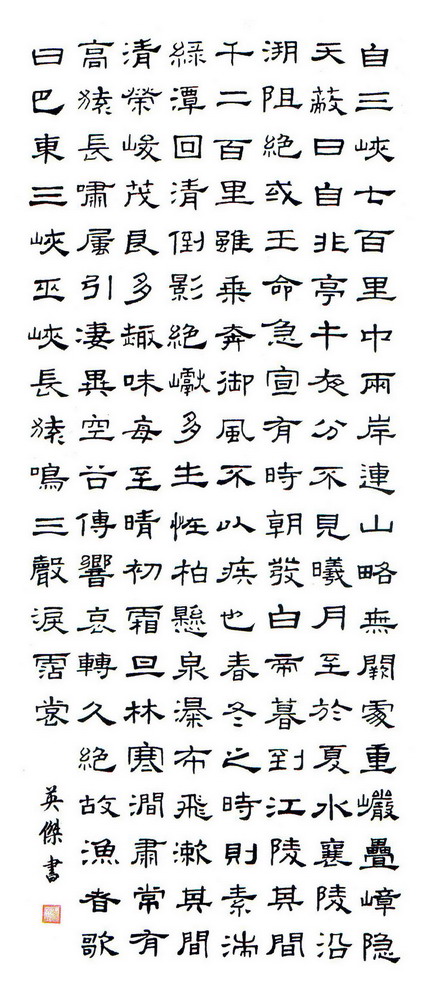 自三峽七百里中兩岸連山略無闕處重巖疊嶂隐
天蔽日自非亭午夜分不見曦月至於夏水襄陵沿
溯阻絕或王命急宣有時朝發白帝暮到江陵其間
千二百里雖乘奔御風不以疾也春冬之時則素湍
綠潭回清倒影絕巘多生怪柏懸泉瀑布飛漱其間
清榮峻茂良多趣味每至晴初霜旦林寒澗肅常有
高猿長嘯屬引淒異空谷傳響哀轉久絕故漁者歌
曰巴東三峽巫峽長猿鳴三聲淚霑裳
英傑書